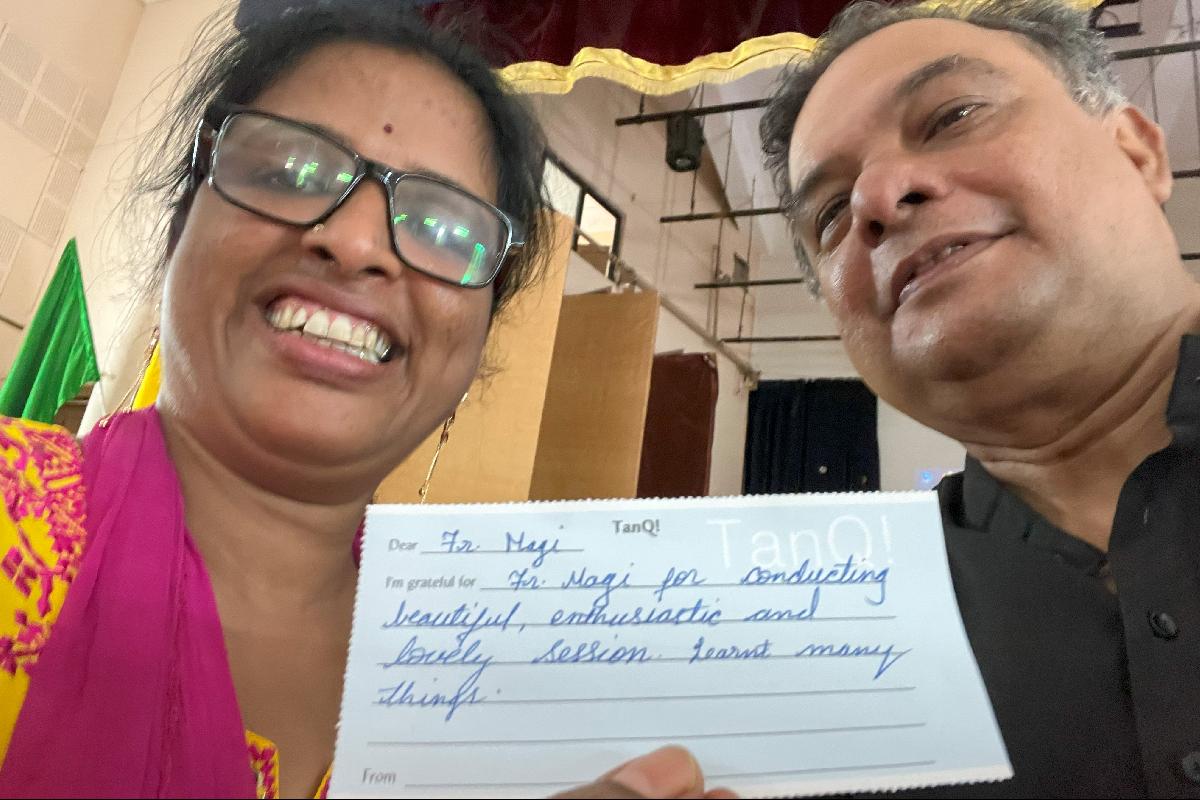 TanQ!
TanQ!
Dear Fr. Magi
I'm grateful for Fr. Magi for conducting
beautiful, enthusiastic and
lovely session. Learnt many
things.
From